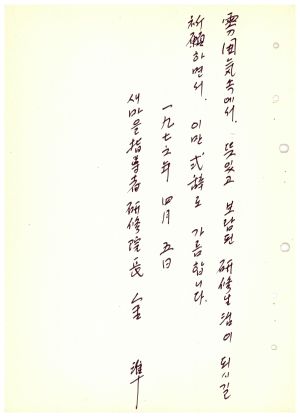 雰囲気속에서. 뜻있고 보람된 研修生活이 되시길
祈願하면서. 이만 式辞로 가름합니다.
一九七六年 四月 五日
새마을指導者 研修院長 金 準